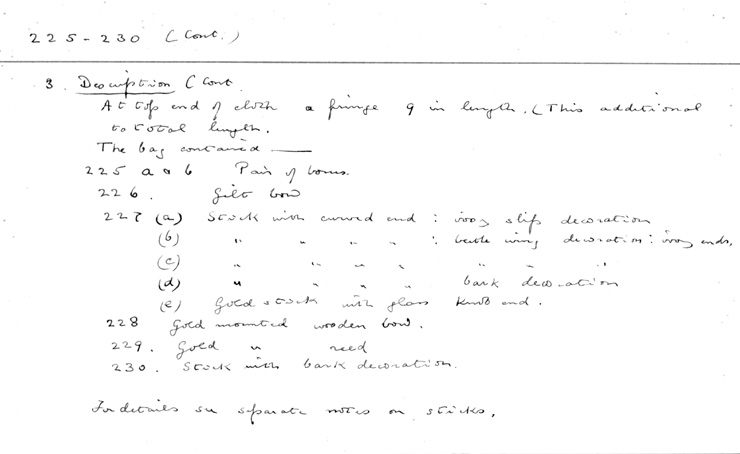 225-230 (Cont.)
3. Description (Cont.
At top end of cloth a fringe 9 in length. (This additional
to total length.
The bag contained —
225 a & b Pair of bows.
226. Gilt bow
227 (a) Stick with curved end : ivory slip decoration
(b) " " " " : beetle wing decoration : ivory ends,
(c) " " " " " " "
(d) " " " " bark decoration
(e) Gold stick with glass knob end.
228 Gold mounted wooden bow.
229. Gold " reed
230. Stick with bark decoration.
For details see separate notes on sticks.